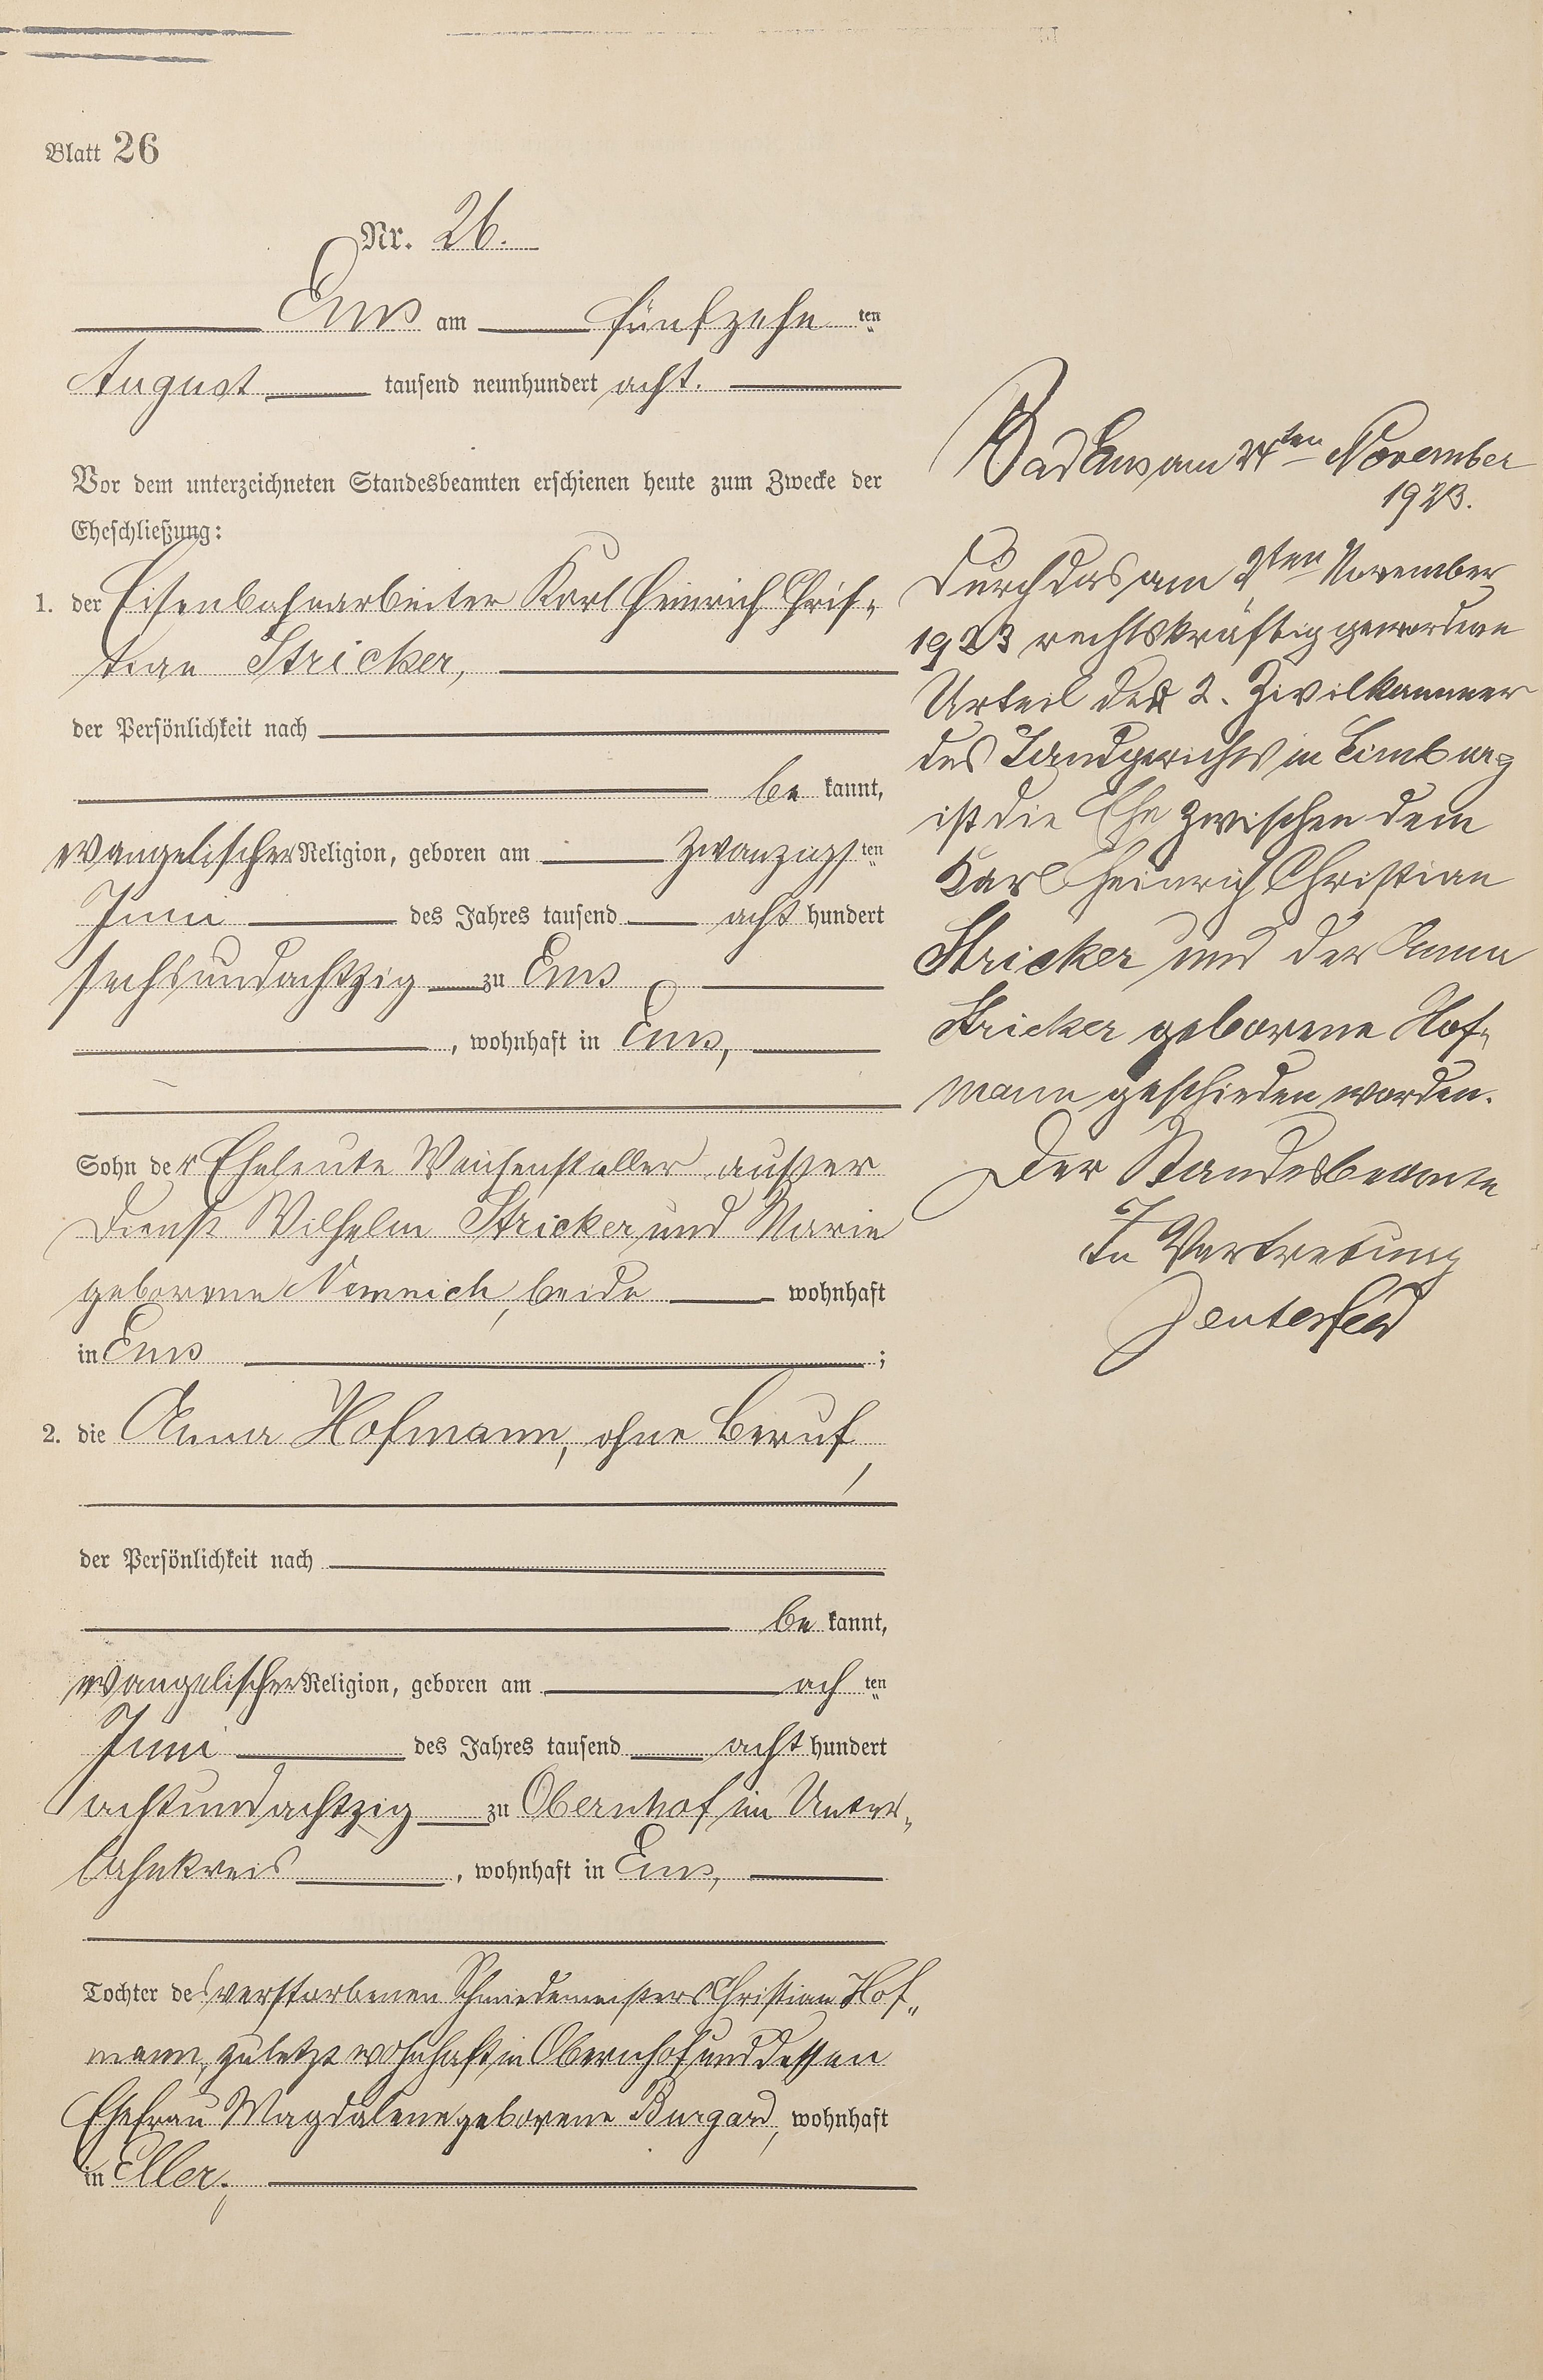 Blatt 26
Nr. 26.
Ems am fünfzehnten
August tausend neunhundert acht.
Vor dem unterzeichneten Standesbeamten erschienen heute zum Zwecke der
Eheschließung:
1. der Eisenbahnarbeiter Karl Heinrich Chris-
tian Stricker,
der Persönlichkeit nach
be kannt,
evangelischer Religion, geboren am zwanzigsten
Juni des Jahres tausend acht hundert
sechsundachtzig zu Ems
, wohnhaft in Ems,
Sohn der Eheleute Weichensteller außer
Dienst Wilhelm Stricker und Marie
geborene Nemnich, beide wohnhaft
in Ems ;
2. die Anna Hofmann, ohne Beruf,
der Persönlichkeit nach
be kannt,
evangelischer Religion, geboren am achten
Juni des Jahres tausend acht hundert
achtundachtzig zu Obernhof im Unter-
lahnkreis , wohnhaft in Ems,
Tochter des verstorbenen Schmiedemeisters Christian Hof-
mann, zuletzt wohnhaft in Obernhof und dessen
Ehefrau Magdalene geborene Burgard, wohnhaft
in Eller.
Bad Ems am 24ten November
1923.
Durch das am 9ten November
1923 rechtskräftig gewordene
Urteil der 2. Zivilkammer
des Landgerichts in Limburg
ist die Ehe zwischen dem
Karl Heinrich Christian
Stricker und der Anna
Stricker geborene Hof-
mann geschieden worden.
Der Standesbeamte
In Vertretung